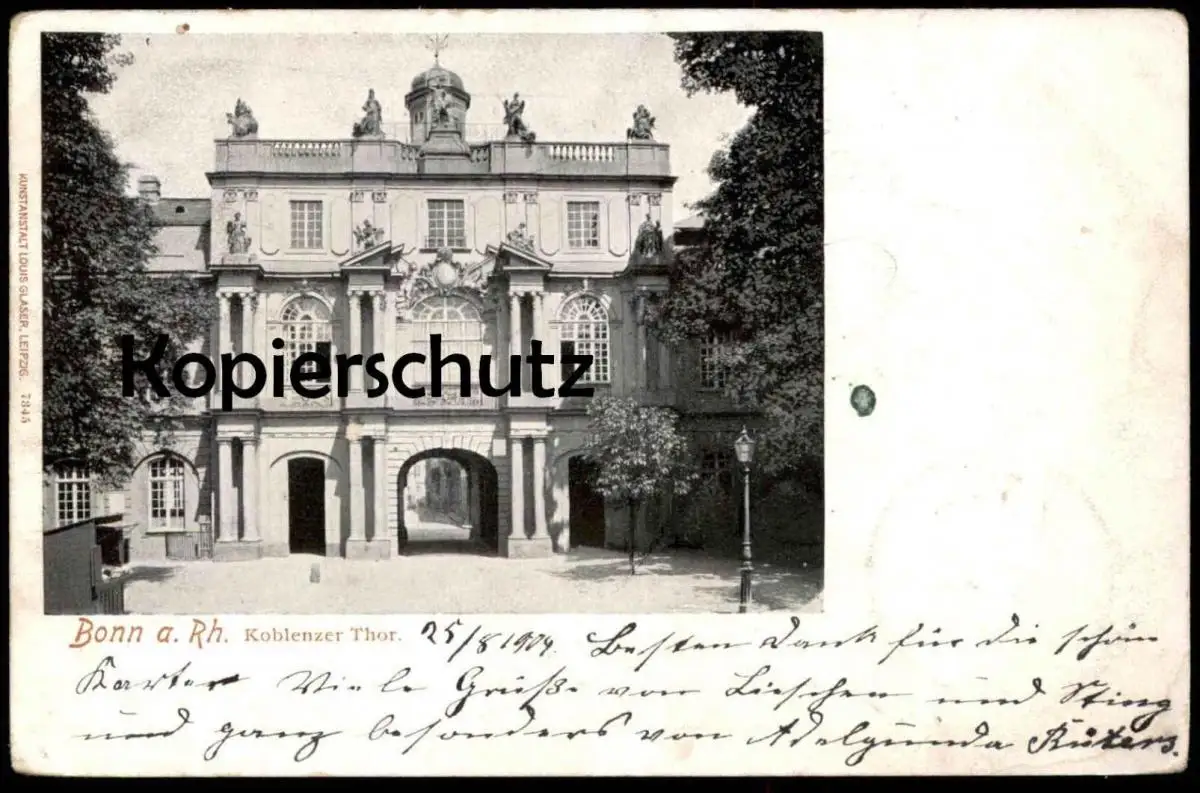 KUNSTANSTALT LOUIS GLASER, LEIPZIG. 7345
Kopierschutz
Bonn a. Rh. Koblenzer Thor. 25/8 1904. Besten Dank für die schöne
Karte Viele Grüße von Lieschen und Stina
und ganz besonders von Adelgunda Rüters.